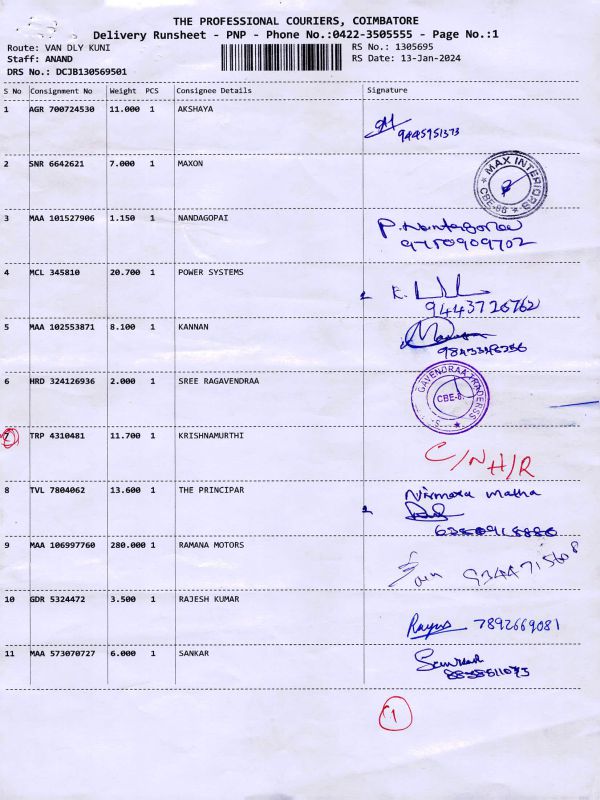 THE PROFESSIONAL COURIERS, COIMBATORE
Delivery Runsheet - PNP - Phone No.:0422-3505555 - Page No.:1
Route: VAN DLY KUNI RS No.: 1305695
Staff: ANAND RS Date: 13-Jan-2024
DRS No.: DCJB130569501
S No Consignment No Weight PCS Consignee Details Signature
1 AGR 700724530 11.000 1 AKSHAYA
9445951373
2 SNR 6642621 7.000 1 MAXON
★ MAX INTERIORS ★ CBE-86
3 MAA 101527906 1.150 1 NANDAGOPAI
9750909702
4 MCL 345810 20.700 1 POWER SYSTEMS
9443726762
5 MAA 102553871 8.100 1 KANNAN
6 HRD 324126936 2.000 1 SREE RAGAVENDRAA
GAVENDRAA TRADERSS CBE-6.
7 TRP 4310481 11.700 1 KRISHNAMURTHI
C/NH/R
8 TVL 7804062 13.600 1 THE PRINCIPAR
Nirmara matha
9 MAA 106997760 280.000 1 RAMANA MOTORS
9344715608
10 GDR 5324472 3.500 1 RAJESH KUMAR
7892669081
11 MAA 573070727 6.000 1 SANKAR
8838511073
1